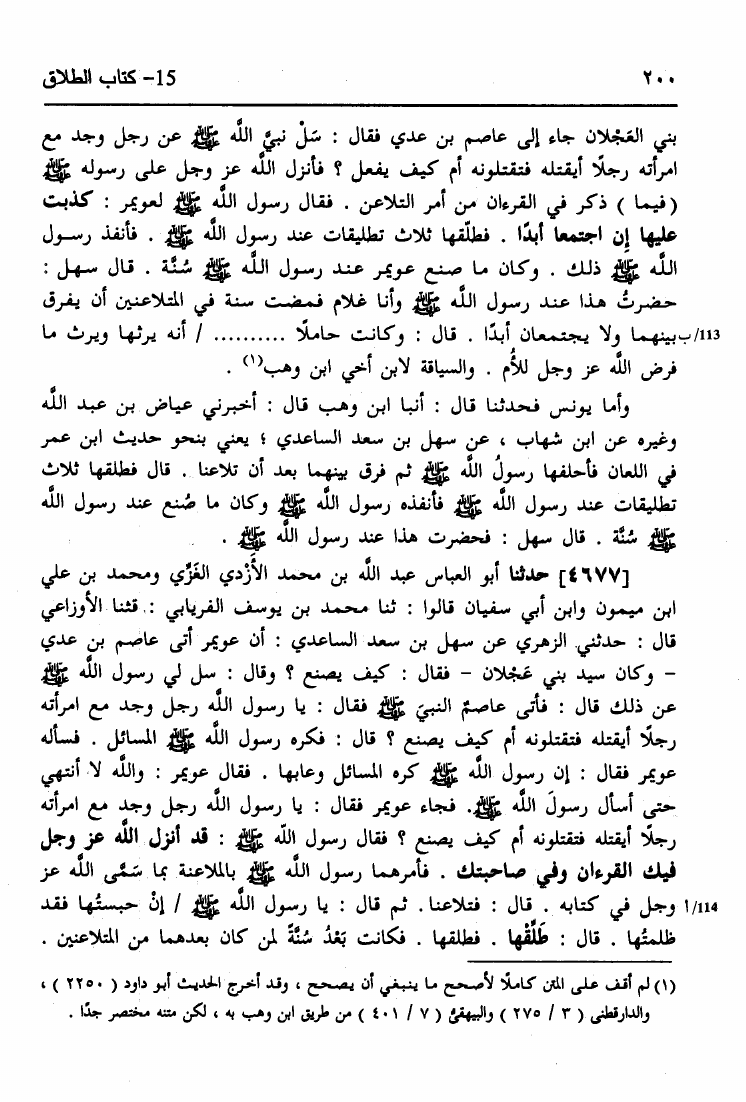 ٢٠٠ 15- كتاب الطلاق
بني العَجْلان جاء إلى عاصم بن عدي فقال : سَلْ نبيَّ اللَّه ﷺ عن رجل وجد مع
امرأته رجلًا أيقتله فتقتلونه أم كيف يفعل ؟ فأنزل اللَّه عز وجل على رسوله ﷺ
(فيما ) ذكر في القرءان من أمر التلاعن . فقال رسول اللَّه ﷺ لعويمر : كذبت
عليها إن اجتمعا أبدًا . فطلّقها ثلاث تطليقات عند رسول اللَّه ﷺ . فأنفذ رسول
اللَّه ﷺ ذلك . وكان ما صنع عويمر عند رسول اللَّه ﷺ سُنَّة . قال سهل :
حضرتُ هذا عند رسول اللَّه ﷺ وأنا غلام فمضت سنة في المتلاعنين أن يفرق
113/ب بينهما ولا يجتمعان أبدًا . قال : وكانت حاملًا .......... / أنه يرثها ويرث ما
فرض اللَّه عز وجل للأُم . والسياقة لابن أخي ابن وهب(١) .
وأما يونس فحدثنا قال : أنبا ابن وهب قال : أخبرني عياض بن عبد اللَّه
وغيره عن ابن شهاب ، عن سهل بن سعد الساعدي ؛ يعني بنحو حديث ابن عمر
في اللعان فأحلفها رسولُ اللَّه ﷺ ثم فرق بينهما بعد أن تلاعنا . قال فطلقها ثلاث
تطليقات عند رسول اللَّه ﷺ فأنفذه رسول اللَّه ﷺ وكان ما صُنع عند رسول اللَّه
ﷺ سُنَّة . قال سهل : فحضرت هذا عند رسول اللَّه ﷺ .
[٤٦٧٧] حدثنا أبو العباس عبد اللَّه بن محمد الأزْدي الغَزِّي ومحمد بن علي
ابن ميمون وابن أبي سفيان قالوا : ثنا محمد بن يوسف الفريابي : قثنا الأوزاعي
قال : حدثني الزهري عن سهل بن سعد الساعدي : أن عويمر أتى عاصم بن عدي
- وكان سيد بني عَجْلان - فقال : كيف يصنع ؟ وقال : سل لي رسول اللَّه ﷺ
عن ذلك قال : فأتى عاصمٌ النبيَ ﷺ فقال : يا رسول اللَّه رجل وجد مع امرأته
رجلًا أيقتله فتقتلونه أم كيف يصنع ؟ قال : فكره رسول اللَّه ﷺ المسائل . فسأله
عويمر فقال : إن رسول اللَّه ﷺ كره المسائل وعابها . فقال عويمر : واللَّه لا أنتهي
حتى أسأل رسولَ اللَّه ﷺ. فجاء عويمر فقال : يا رسول اللَّه رجل وجد مع امرأته
رجلًا أيقتله فتقتلونه أم كيف يصنع ؟ فقال رسول اللّه ﷺ : قد أنزل اللَّه عز وجل
فيك القرءان وفي صاحبتك . فأمرهما رسول اللَّه ﷺ بالملاعنة بما سَمَّى اللَّه عز
114/أ وجل في كتابه . قال : فتلاعنا. ثم قال : يا رسول اللَّه ﷺ / إنْ حبستُها فقد
ظلمتُها . قال : طَلِّقْها . فطلقها . فكانت بَعْدُ سُنَّةً لمن كان بعدهما من المتلاعنين .
(١) لم أقف على المتن كاملًا لأصحح ما ينبغي أن يصحح ، وقد أخرج الحديث أبو داود ( ٢٢٥٠ ) ،
والدارقطنى ( ٣ / ٢٧٥ ) والبيهقيّ ( ٧ / ٤٠١ ) من طريق ابن وهب به ، لكن متنه مختصر جدًا .